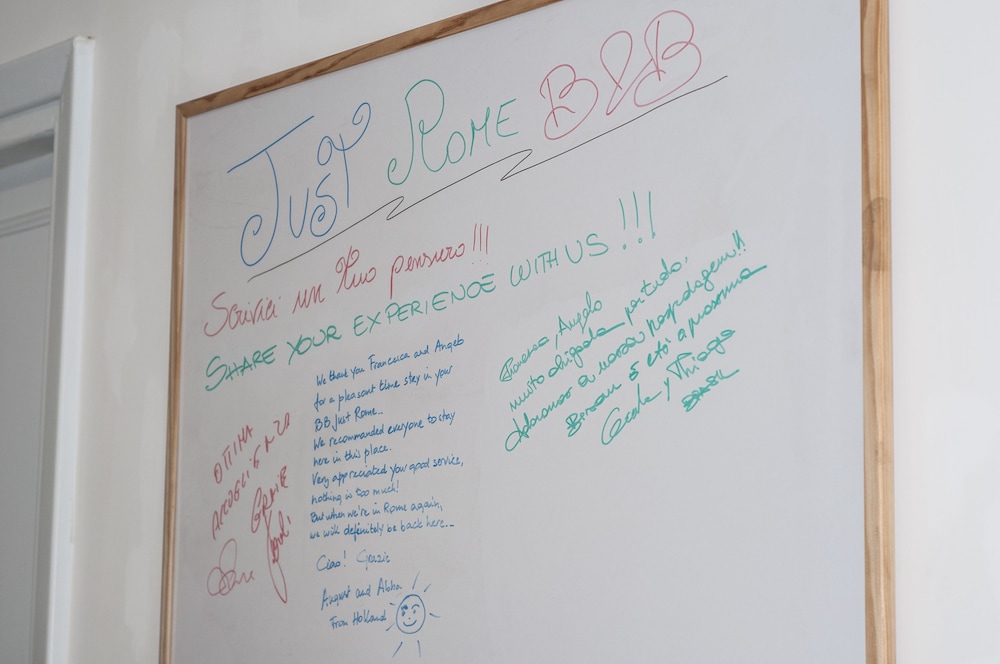 JUST ROME B&B
Scrivici un tuo pensiero!!!
SHARE YOUR EXPERIENCE WITH US!!!
We thank you Francesca and Angelo
for a pleasant time stay in your
BB Just Rome...
We recommanded everyone to stay
here in this place.
Very appreciated your good service,
nothing is too much!
But when we're in Rome again,
we will definitely be back here...
Ciao! Grazie
August and Aloha
From Holland
OTTIMA
ACCOGLIENZA
GRAZIE
Francesca, Angelo
muito obrigada por tudo.
Adoramos a nossa hospedagem!!
e até a próxima
y Thiago
BRASIL